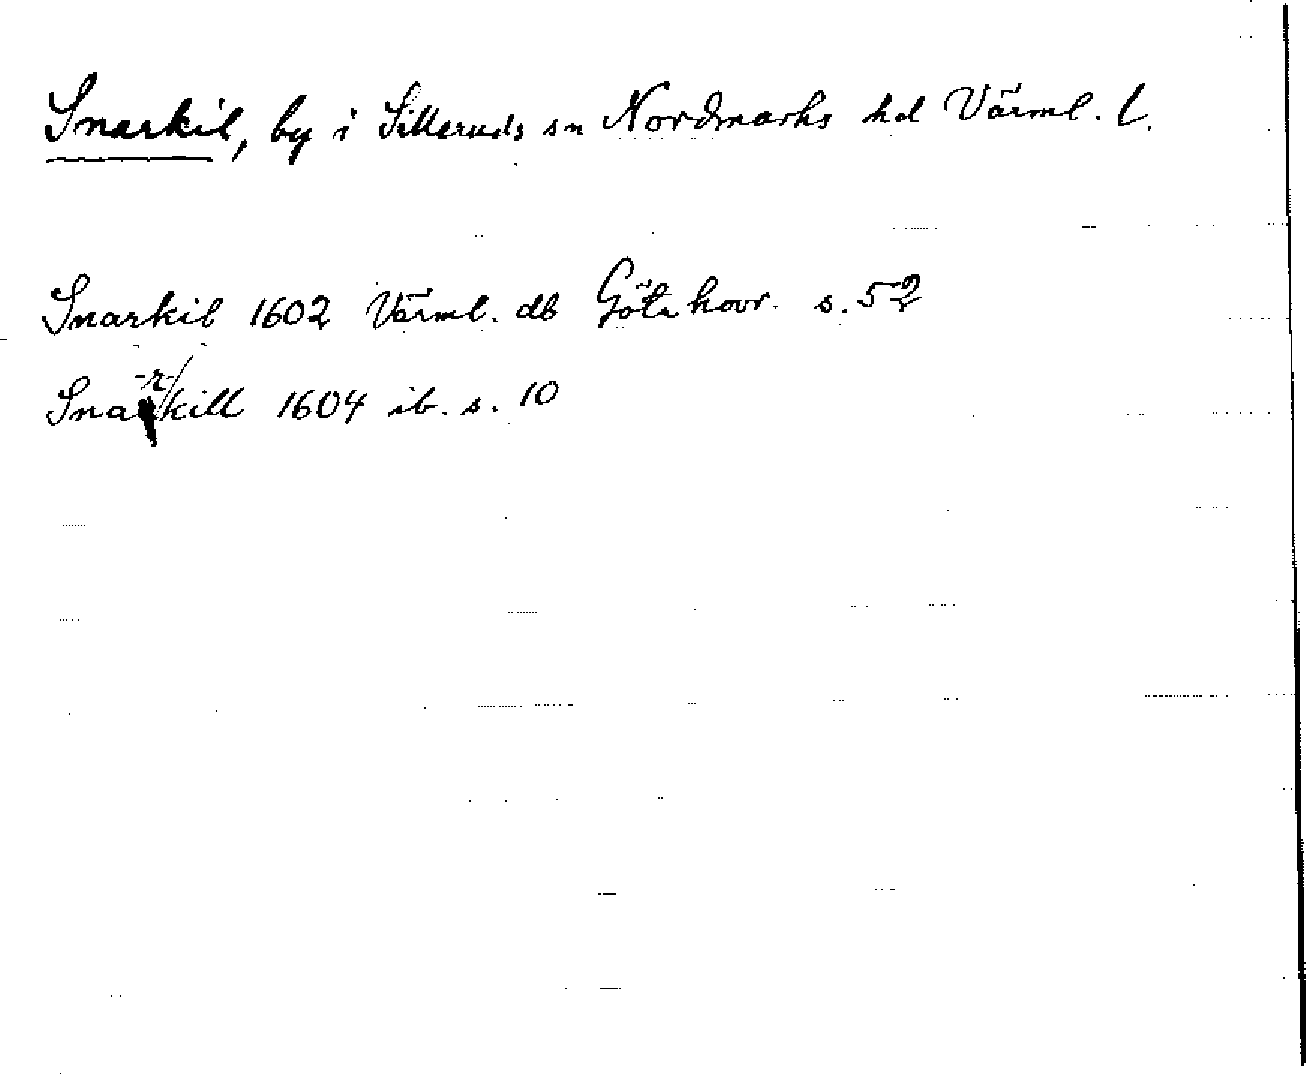 Snarkil, by i Silleruds sn Nordmarks hd Värml. l.
Snarkil 1602 Värml. db Göta hovr. s. 52
Snarkill 1604 ib. s. 10